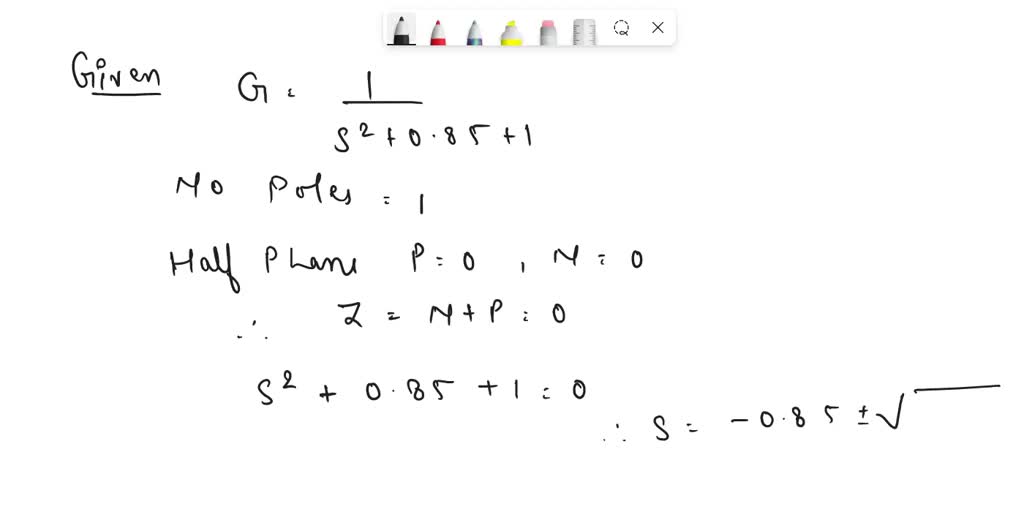 Given G = 1 / S² + 0.8S + 1
No Poles = 1
Half Plane P = 0 , N = 0
∴ Z = N + P = 0
S² + 0.8S + 1 = 0
∴ S = -0.8S ± √